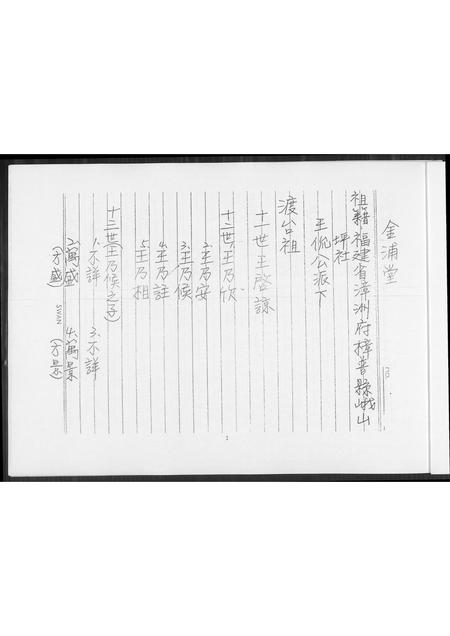 金浦堂
祖籍福建省漳洲府樟普縣峨山
坪社
王侃公派下
渡台祖
十一世王啓諒
十二世1.王乃欣
2.王乃安
3.王乃候
4.王乃註
5.王乃租
十三世(王乃候之子)
1.不詳 3.不詳
2.萬盛 4.萬景
(方盛) (方景)
SWAN
1